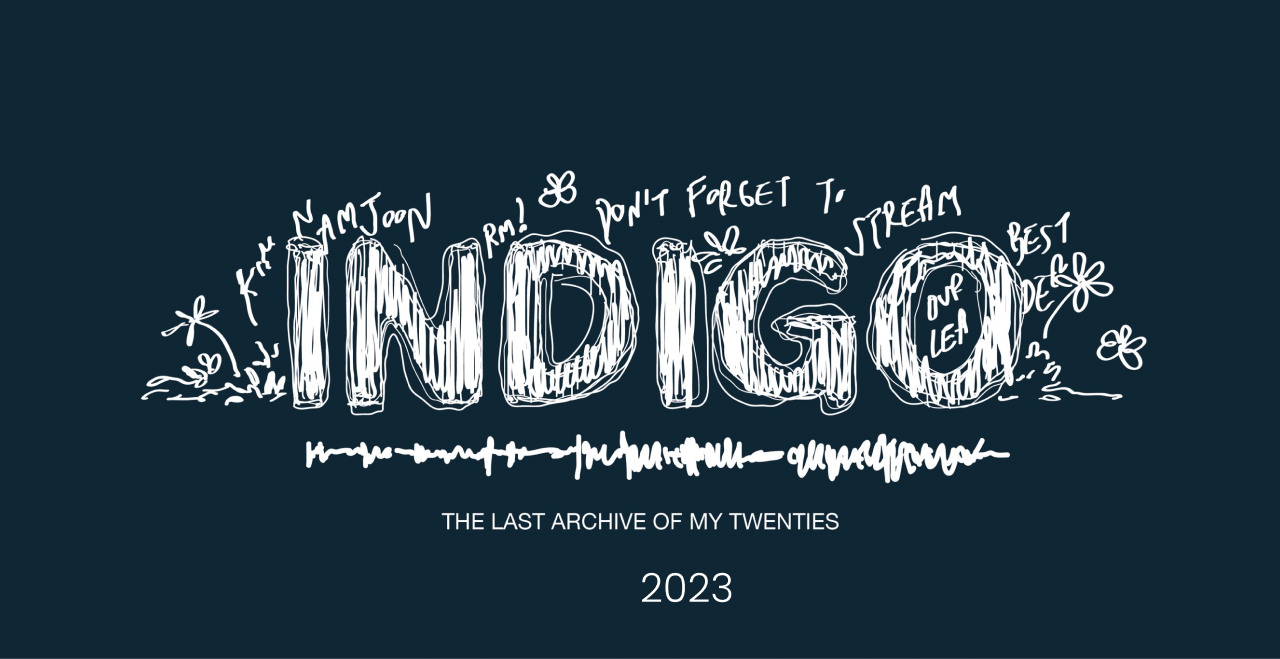 KIM
NAMJOON
RM!
DON'T FORGET TO
STREAM
BEST
INDIGO
OUR
LEA
DE
THE LAST ARCHIVE OF MY TWENTIES
2023